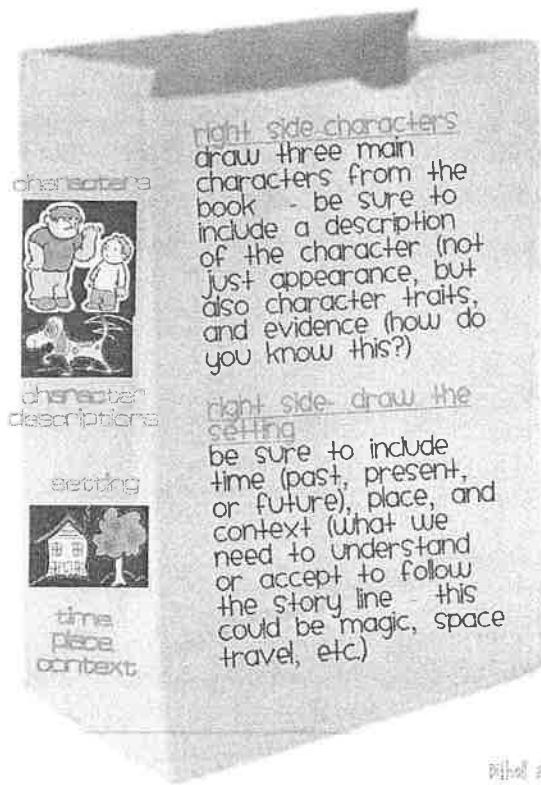 characters
character
descriptions
setting
time
place
context
right side-characters
draw three main
characters from the
book - be sure to
include a description
of the character (not
just appearance, but
also character traits,
and evidence (how do
you know this?)
right side- draw the
setting
be sure to include
time (past, present,
or future), place, and
context (what we
need to understand
or accept to follow
the story line - this
could be magic, space
travel, etc.)